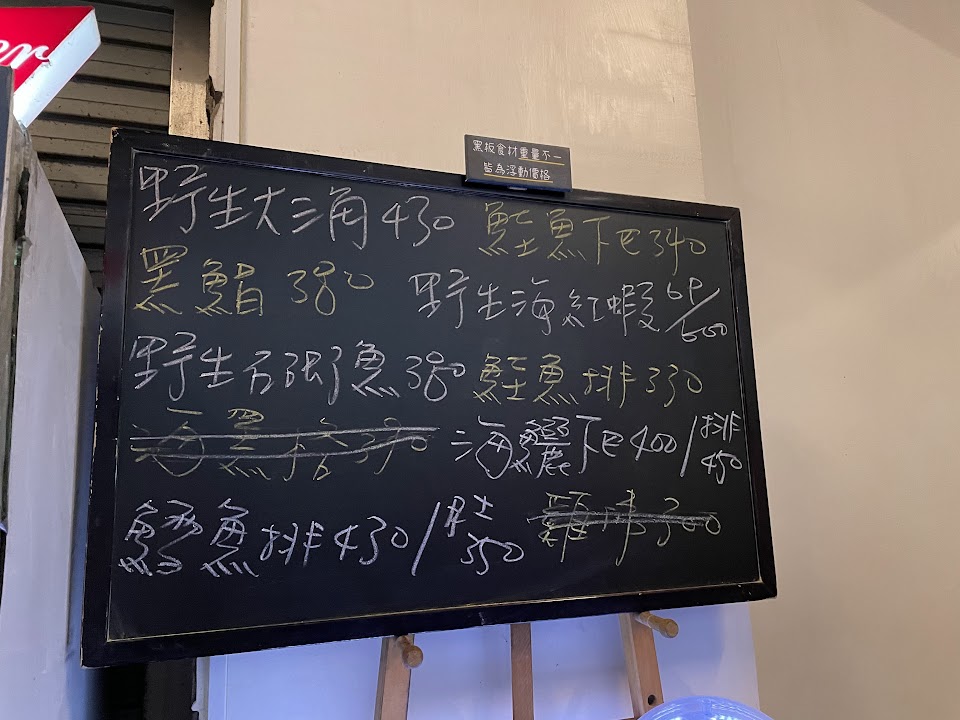 er
黑板食材重量不一
皆為浮動價格
野生大三角430
鮭魚下巴340
黑鯧 380
野生海紅蝦6P/600
野生石斑魚380
鮭魚排330
海黑格390
海鱺下巴400/排450
鱘魚排430/肚350
雞味300